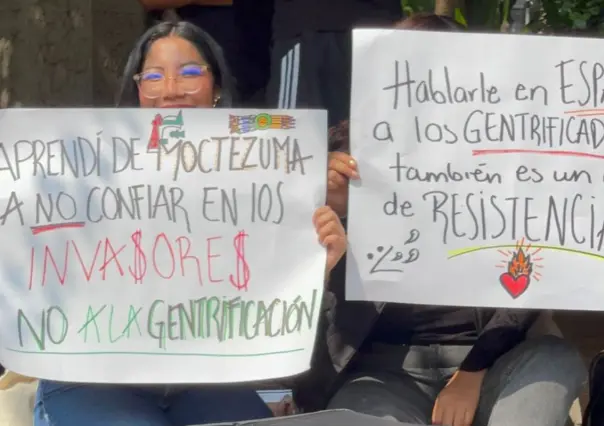 APRENDÍ DE MOCTEZUMA
A NO CONFIAR EN lOS
INVA$ORE$
NO A LA GENTRIFICACIÓN
Hablarle en ESPA
a los GENTRIFICAD
también es un
de RESISTENCIA